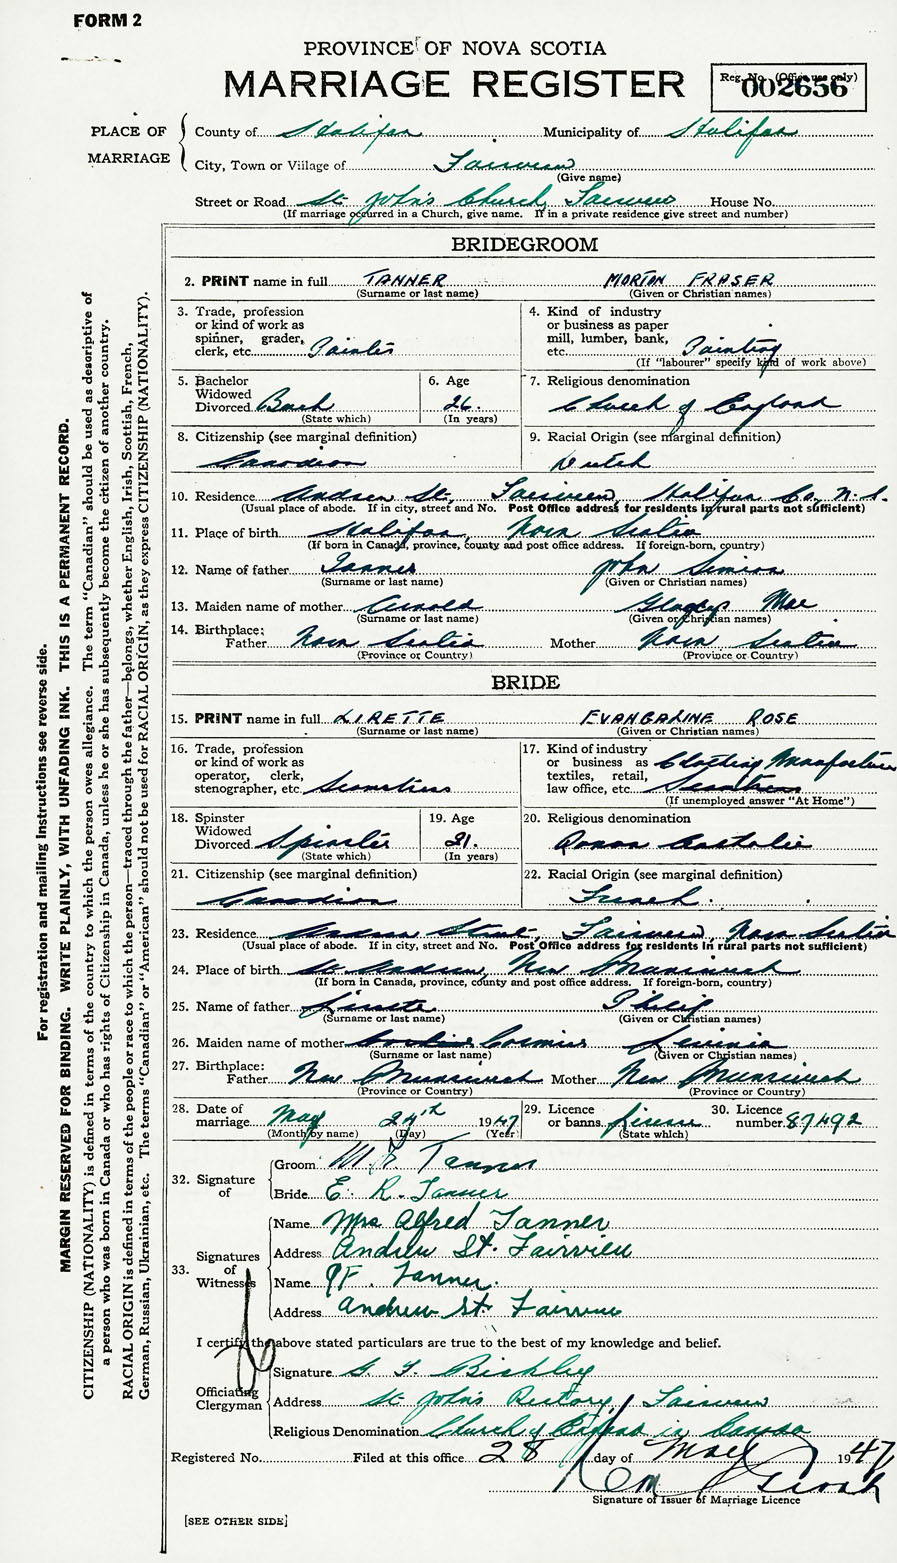 FORM 2
PROVINCE OF NOVA SCOTIA
MARRIAGE REGISTER
Reg. No. (Office use only)
002656
PLACE OF MARRIAGE
County of Halifax Municipality of Halifax
City, Town or Village of Fairview
(Give name)
Street or Road St. John's Church, Fairview House No.
(If marriage occurred in a Church, give name. If in a private residence give street and number)
BRIDEGROOM
2. PRINT name in full TANNER MORTON FRASER
(Surname or last name) (Given or Christian names)
3. Trade, profession or kind of work as spinner, grader, clerk, etc. Painter
4. Kind of industry or business as paper mill, lumber, bank, etc. Painting
(If "labourer" specify kind of work above)
5. Bachelor Widowed Divorced Bach
(State which)
6. Age 26.
(In years)
7. Religious denomination
Church of England
8. Citizenship (see marginal definition)
Canadian
9. Racial Origin (see marginal definition)
Dutch
10. Residence Andrew St., Fairview, Halifax Co., N.S.
(Usual place of abode. If in city, street and No. Post Office address for residents in rural parts not sufficient)
11. Place of birth Halifax, Nova Scotia
(If born in Canada, province, county and post office address. If foreign-born, country)
12. Name of father Tanner John Simion
(Surname or last name) (Given or Christian names)
13. Maiden name of mother Arnold Gladys Mae
(Surname or last name) (Given or Christian names)
14. Birthplace: Father Nova Scotia Mother Nova Scotia
(Province or Country) (Province or Country)
BRIDE
15. PRINT name in full LIRETTE EVANGALINE ROSE
(Surname or last name) (Given or Christian names)
16. Trade, profession or kind of work as operator, clerk, stenographer, etc. Seamstress
17. Kind of industry or business as textiles, retail, law office, etc. Clothing Manufacture
(If unemployed answer "At Home")
18. Spinster Widowed Divorced Spinster
(State which)
19. Age 21.
(In years)
20. Religious denomination
Roman Catholic
21. Citizenship (see marginal definition)
Canadian
22. Racial Origin (see marginal definition)
French
23. Residence Andrew Street, Fairview, Nova Scotia
(Usual place of abode. If in city, street and No. Post Office address for residents in rural parts not sufficient)
24. Place of birth St. Andrew, New Brunswick
(If born in Canada, province, county and post office address. If foreign-born, country)
25. Name of father Lirette Philip
(Surname or last name) (Given or Christian names)
26. Maiden name of mother Cormier Livinia
(Surname or last name) (Given or Christian names)
27. Birthplace: Father New Brunswick Mother New Brunswick
(Province or Country) (Province or Country)
28. Date of marriage May 24th 1947
(Month by name) (Day) (Year)
29. Licence or banns License
(State which)
30. Licence number 87492
32. Signature of
Groom M. F. Tanner
Bride E. R. Tanner
33. Signatures of Witnesses
Name Mrs Alfred Tanner
Address Andrew St. Fairview
Name Tanner.
Address Andrew St. Fairview
I certify the above stated particulars are true to the best of my knowledge and belief.
Officiating Clergyman
Signature
Address St. John's Rectory, Fairview
Religious Denomination Church of England in Canada
Registered No. Filed at this office 28 day of May 1947
Signature of Issuer of Marriage Licence
[SEE OTHER SIDE]
For registration and mailing instructions see reverse side.
MARGIN RESERVED FOR BINDING. WRITE PLAINLY, WITH UNFADING INK. THIS IS A PERMANENT RECORD.
CITIZENSHIP (NATIONALITY) is defined in terms of the country to which the person owes allegiance. The term "Canadian" should be used as descriptive of
a person who was born in Canada or who has rights of Citizenship in Canada, unless he or she has subsequently become the citizen of another country.
RACIAL ORIGIN is defined in terms of the people or race to which the person—traced through the father—belongs, whether English, Irish, Scottish, French,
German, Russian, Ukrainian, etc. The terms "Canadian" or "American" should not be used for RACIAL ORIGIN, as they express CITIZENSHIP (NATIONALITY).